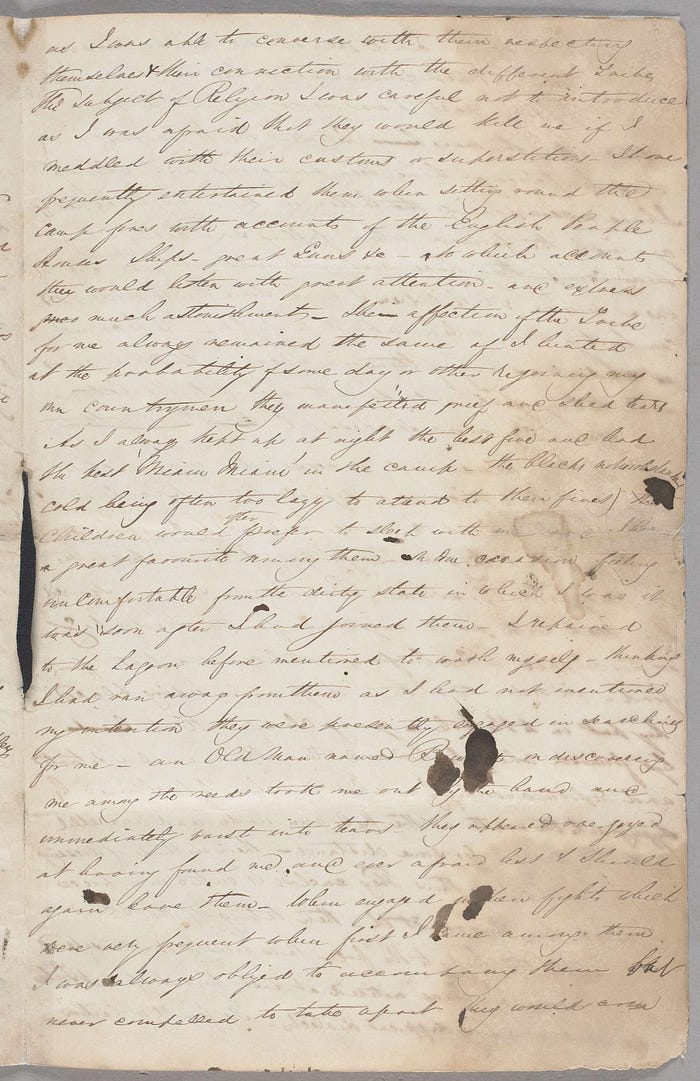 as I was able to converse with them respecting
themselves & their connection with the different Tribes
The subject of Religion I was careful not to introduce
as I was afraid that they would kill me if I
meddled with their customs or superstitions - I have
frequently entertained them when setting round the
camp fires with accounts of the English People
Houses Ships - great Guns &c - to which accounts
they would listen with great attention - and express
much astonishment - The affection of the Tribe
for me always remained the same if I hinted
at the probability of some day or other rejoining my
own countrymen they manifested grief and shed tears
As I always kept up at night the best fire and had
the best Miam Miam in the camp - the blacks
cold being often too lazy to attend to their fires) the
Children would often prefer to sleep with me and I was
a great favourite among them - on one occasion feeling
uncomfortable from the dirty state in which I was it
was soon after I had joined them - I repaired
to the Lagoon before mentioned to wash myself - thinking
I had ran away from them as I had not mentioned
my intention they were presently engaged in searching
for me - an Old Man named on discovering
me among the reeds took me out by the hand and
immediately burst into tears - they appeared overjoyed
at having found me and ever afraid lest I should
again leave them - When engaged in their fights which
were very frequent when first I came among them
I was always obliged to accompany them but
never compelled to take a part they would arm